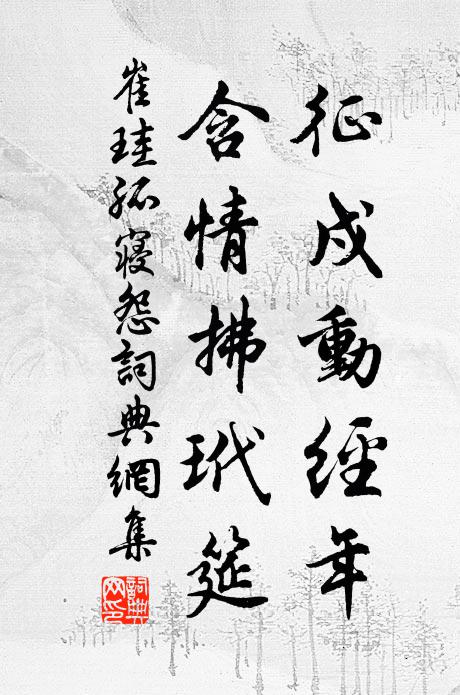 征戍動經年
含情拂玳筵
崔珪孤寢怨詞典網集
詞典